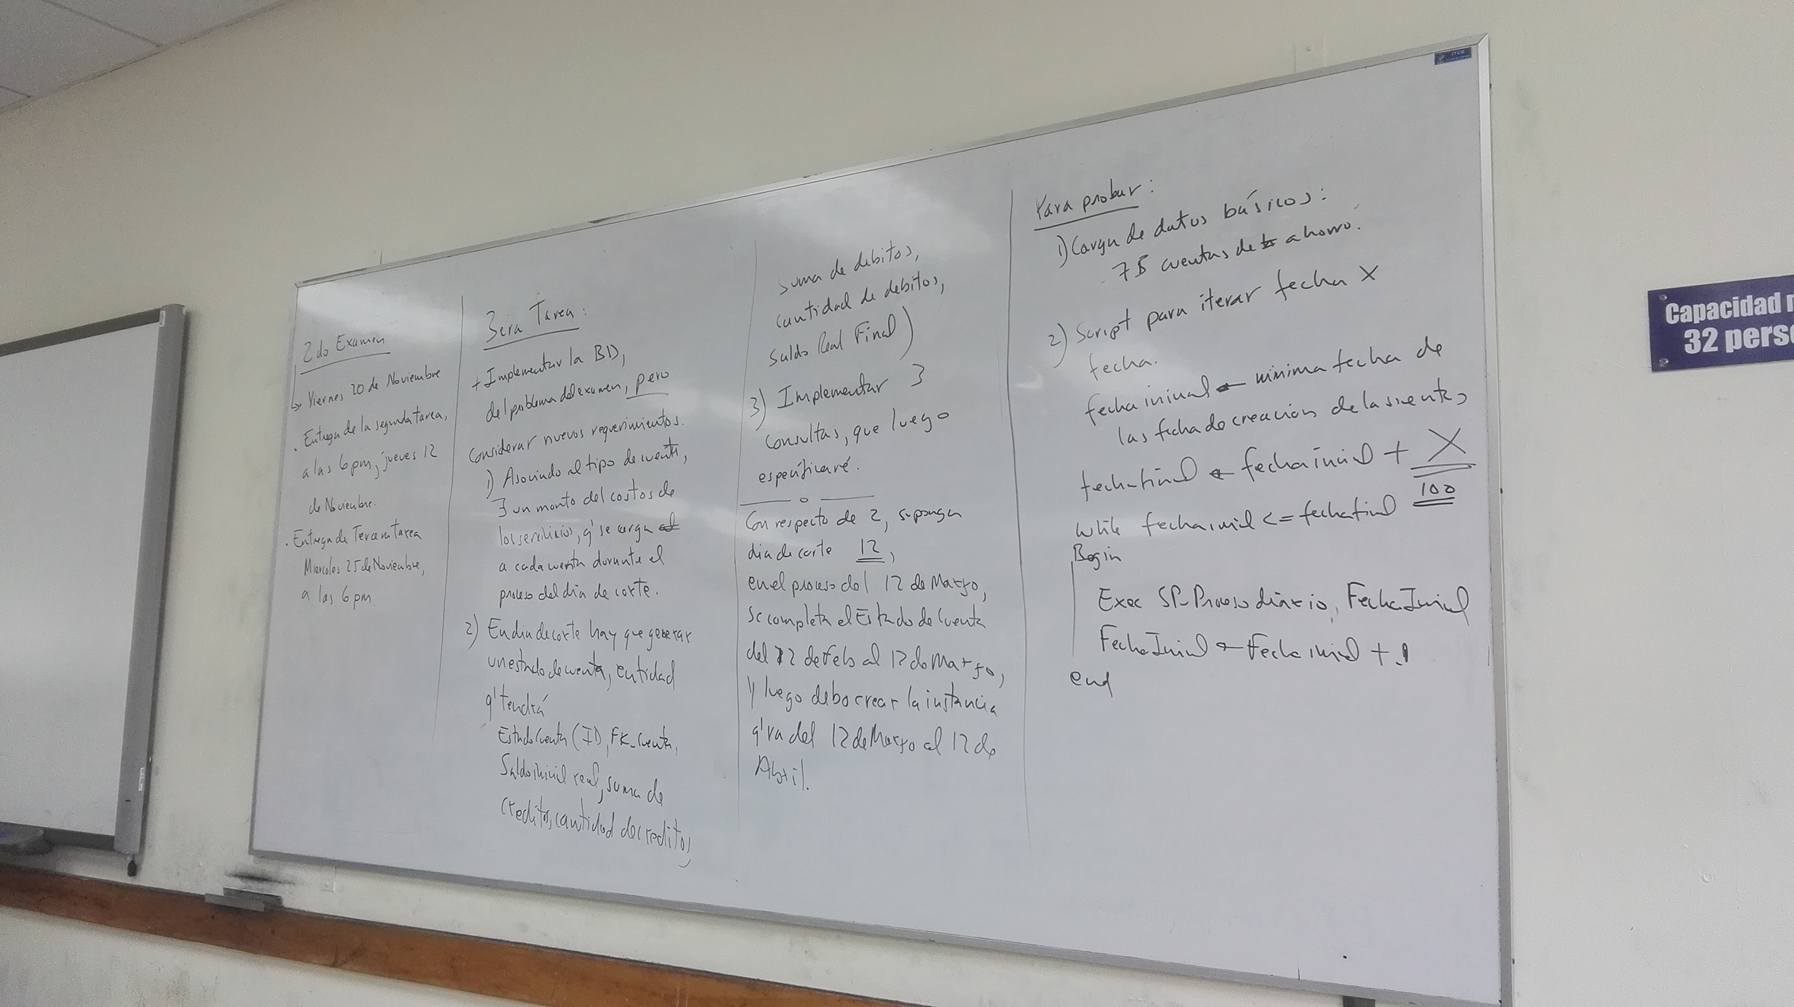 2do Examen
Viernes 20 de Noviembre
. Entrega de la segunda tarea,
a las 6pm, jueves 12
de Noviembre.
. Entrega de Tercera tarea
Miercoles 25 de Noviembre,
a las 6pm
3era Tarea:
+ Implementar la BD,
del problema del examen, pero
considerar nuevos requerimientos.
1) Asociado al tipo de cuenta,
∃ un monto del costos de
los servicios, q' se carga
a cada cuenta durante el
proceso del día de corte.
2) En dia de corte hay que generar
un estado de cuenta, entidad
q' tendrá
EstadoCuenta (ID, FK_Cuenta,
Saldo inicial real, suma de
creditos, cantidad de creditos,
suma de debitos,
cantidad de debitos,
Saldo Real Final)
3) Implementar 3
consultas, que luego
especificaré.
Con respecto de 2, suponga
dia de corte 12,
en el proceso del 12 de Marzo,
se completa el Estado de Cuenta
del 12 de Feb al 12 de Marzo,
y luego debo crear la instancia
q' va del 12 de Marzo al 12 de
Abril.
Para probar:
1) Carga de datos básicos:
75 cuentas de ahorro.
2) Script para iterar fecha x
fecha.
fecha inicial ← minima fecha de
las fecha de creación de las cuentas
fechafinal ← fechainicial + X
100
while fechainicial <= fechafinal
Begin
Exec SP-Proceso diario, FechaInicial
FechaInicial ← Fecha inicial + 1
end
Capacidad
32 pers